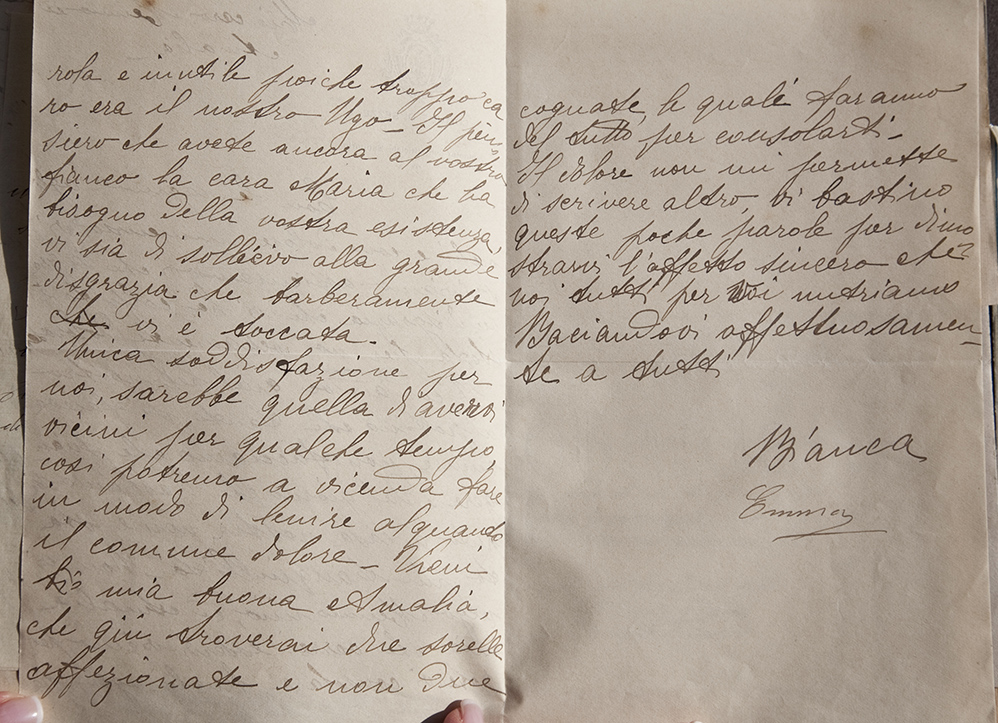 rola e inutile poiche troppo ca
ro era il nostro Ugo_ Il pen-
siero che avete ancora al vostro
fianco la cara Maria che ha
bisogno della vostra esistenza,
vi sia di sollievo alla grande
disgrazia che barberamente
che vi è toccata.
Unica soddisfazione per
noi, sarebbe quella di avervi
vicini per qualche tempo,
cosi potremo a vicenda fare
in modo di lenire alquando
il comune dolore_ Vieni
mia buona Amalia,
che qui troverai due sorelle
affezionate e non due
cognate, le quali faranno
del tutto per consolarti_
Il dolore non mi permette
di scrivere altro, vi bastino
queste poche parole per dimo
strarvi l'affetto sincero che
noi tutti per Voi nutriamo
Baciandovi affettuosamen-
te a tutti
Bianca
Emma